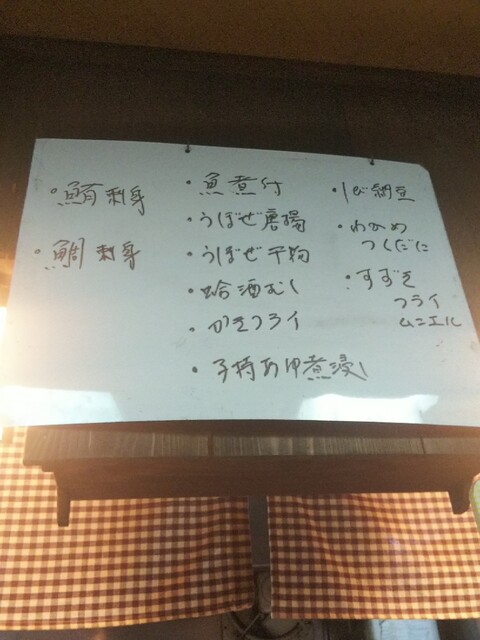 ・鮪刺身
・鯛刺身
・魚煮付
・うぼぜ唐揚
・うぼぜ干物
・蛤酒むし
・かきフライ
・子持あゆ煮浸し
・しび納豆
・わかめ
つくだに
・すずき
フライ
ムニエル